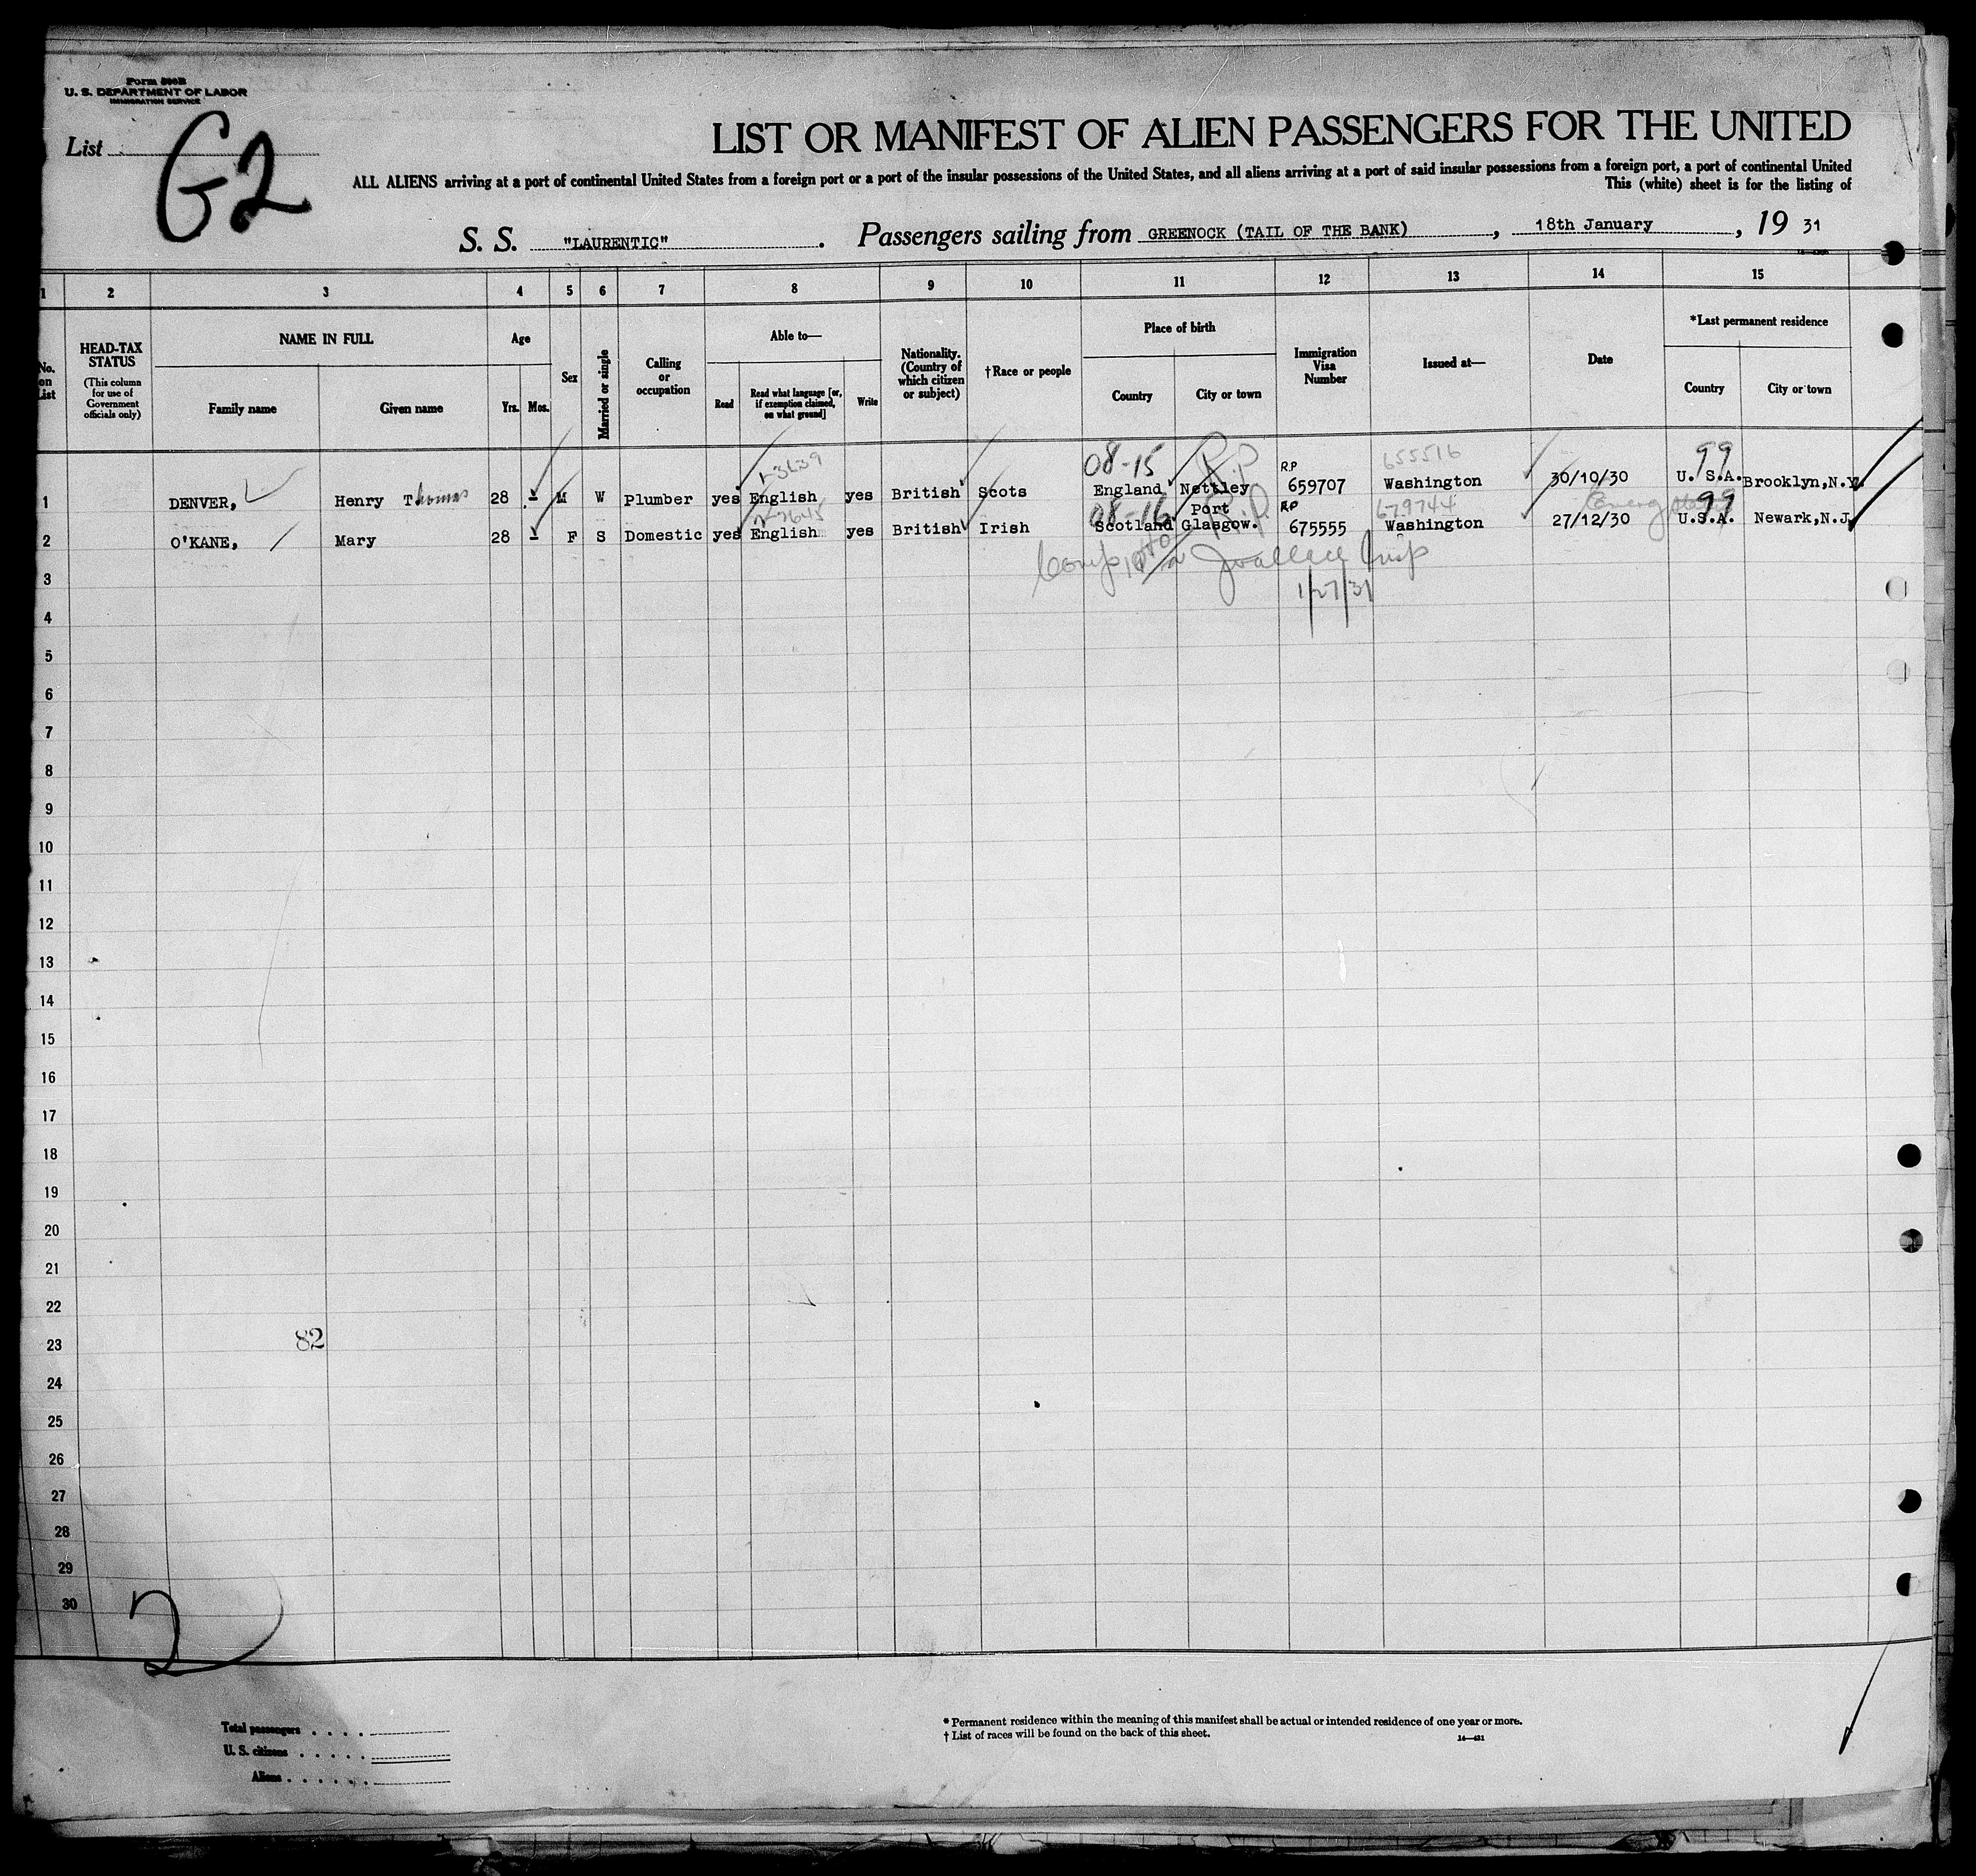 Form 500B
U. S. DEPARTMENT OF LABOR
IMMIGRATION SERVICE
List G2
LIST OR MANIFEST OF ALIEN PASSENGERS FOR THE UNITED
ALL ALIENS arriving at a port of continental United States from a foreign port or a port of the insular possessions of the United States, and all aliens arriving at a port of said insular possessions from a foreign port, a port of continental United
This (white) sheet is for the listing of
S. S. "LAURENTIC". Passengers sailing from GREENOCK (TAIL OF THE BANK), 18th January, 19 31
1 2 3 4 5 6 7 8 9 10 11 12 13 14 15
No. on List
HEAD-TAX STATUS
(This column for use of Government officials only)
NAME IN FULL
Family name Given name
Age
Yrs. Mos.
Sex
Married or single
Calling or occupation
Able to—
Read
Read what language [or, if exemption claimed, on what ground]
Write
Nationality. (Country of which citizen or subject)
†Race or people
Place of birth
Country City or town
Immigration Visa Number
Issued at—
Date
*Last permanent residence
Country City or town
08-15 R.P 655516 99
1 DENVER, Henry Thomas 28 - M W Plumber yes English yes British Scots England Nettley 659707 Washington 30/10/30 U. S.A. Brooklyn,N.Y.
08-16 R.P RP 679744 99
2 O'KANE, Mary 28 - F S Domestic yes English yes British Irish Scotland Port Glasgow. 675555 Washington 27/12/30 U.S.A. Newark,N.J.
Insp
1/27/31
3
4
5
6
7
8
9
10
11
12
13
14
15
16
17
18
19
20
21
22
23 82
24
25
26
27
28
29
30
2
Total passengers
U. S. citizens
Aliens
* Permanent residence within the meaning of this manifest shall be actual or intended residence of one year or more.
† List of races will be found on the back of this sheet.
14—431